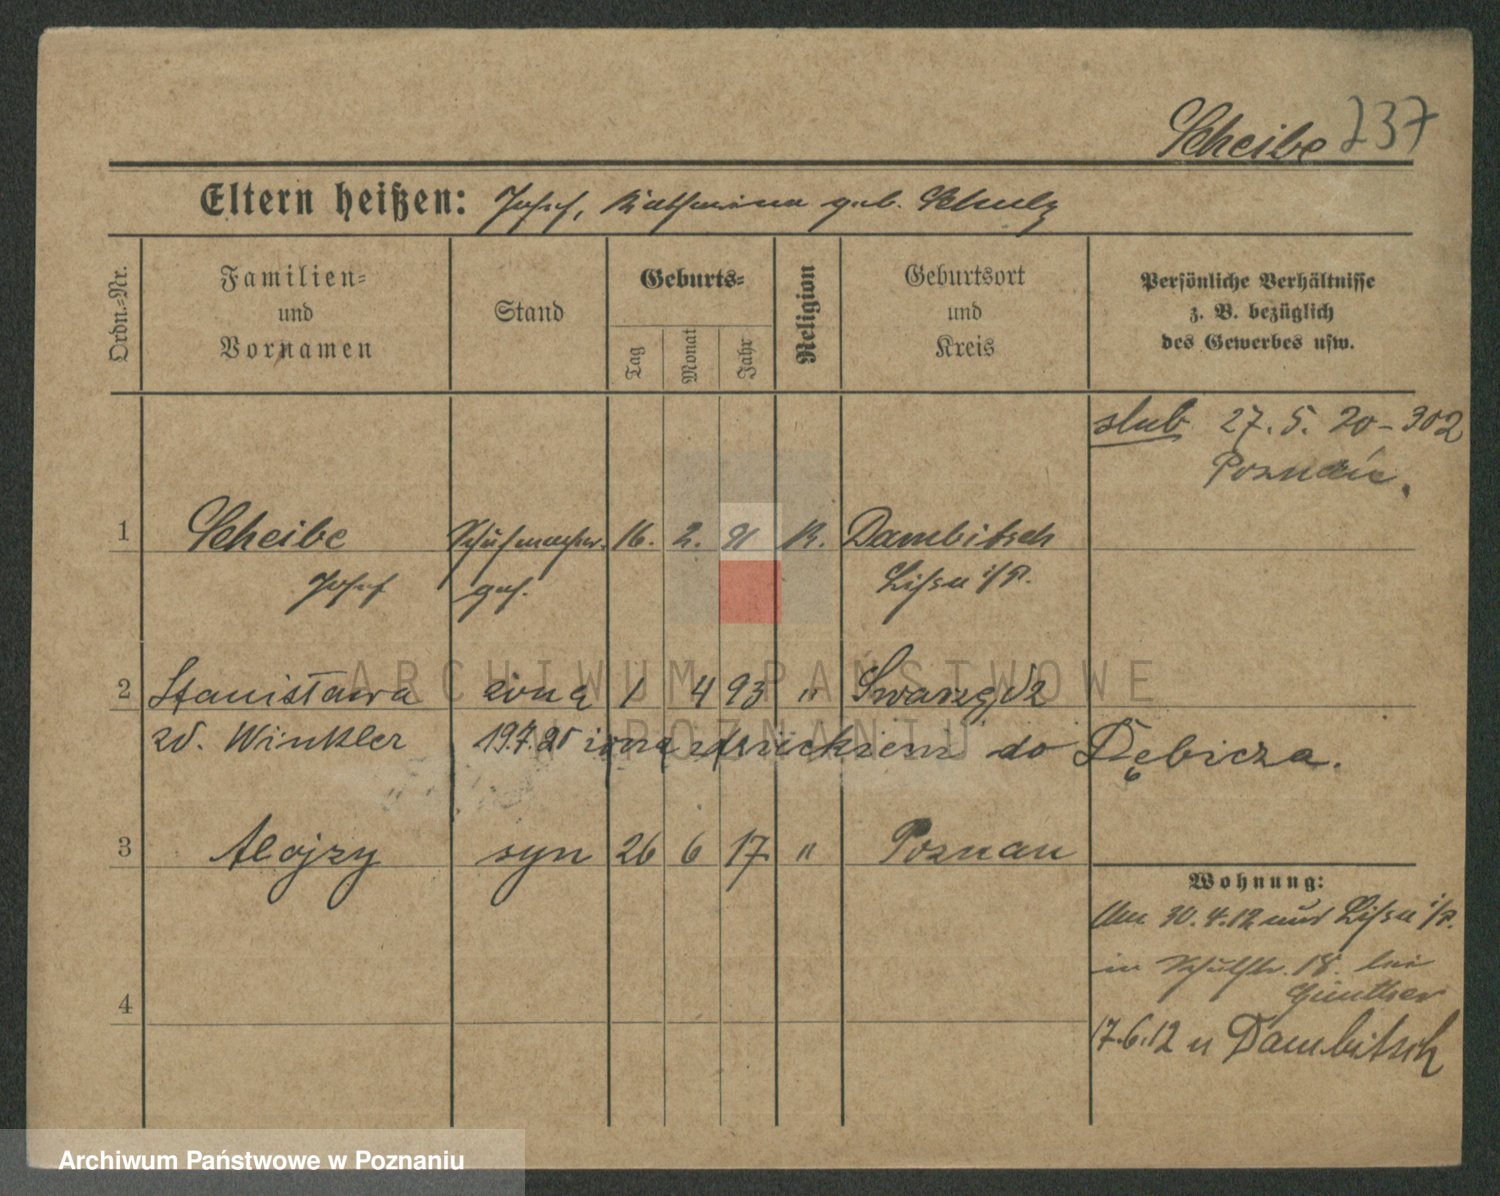 Scheibe 237
Eltern heißen: Josef, Katharina geb. Schulz
Ordn.-Nr.
Familien-
und
Vornamen
Stand
Geburts-
Tag
Monat
Jahr
Religion
Geburtsort
und
Kreis
Persönliche Verhältnisse
z. B. bezüglich
des Gewerbes usw.
slub 27. 5. 20 - 302
Poznań.
1 Scheibe Schuhmacher. 16. 2. 91 K. Dambitsch
Josef ges. Lissa i/P.
ARCHIWUM PAŃSTWOWE
W POZNANIU
2 Stanisława żona 1 4 93 " Swarzędz
zd. Winkler 19.7.20 żona z do Dębicza.
3 Alojzy syn 26 6 17. " Poznan
Wohnung:
Am 30.4.12 aus Lissa i/P.
in 18. bei
Günther
17.6.12 n Dambitsch
4
Archiwum Państwowe w Poznaniu